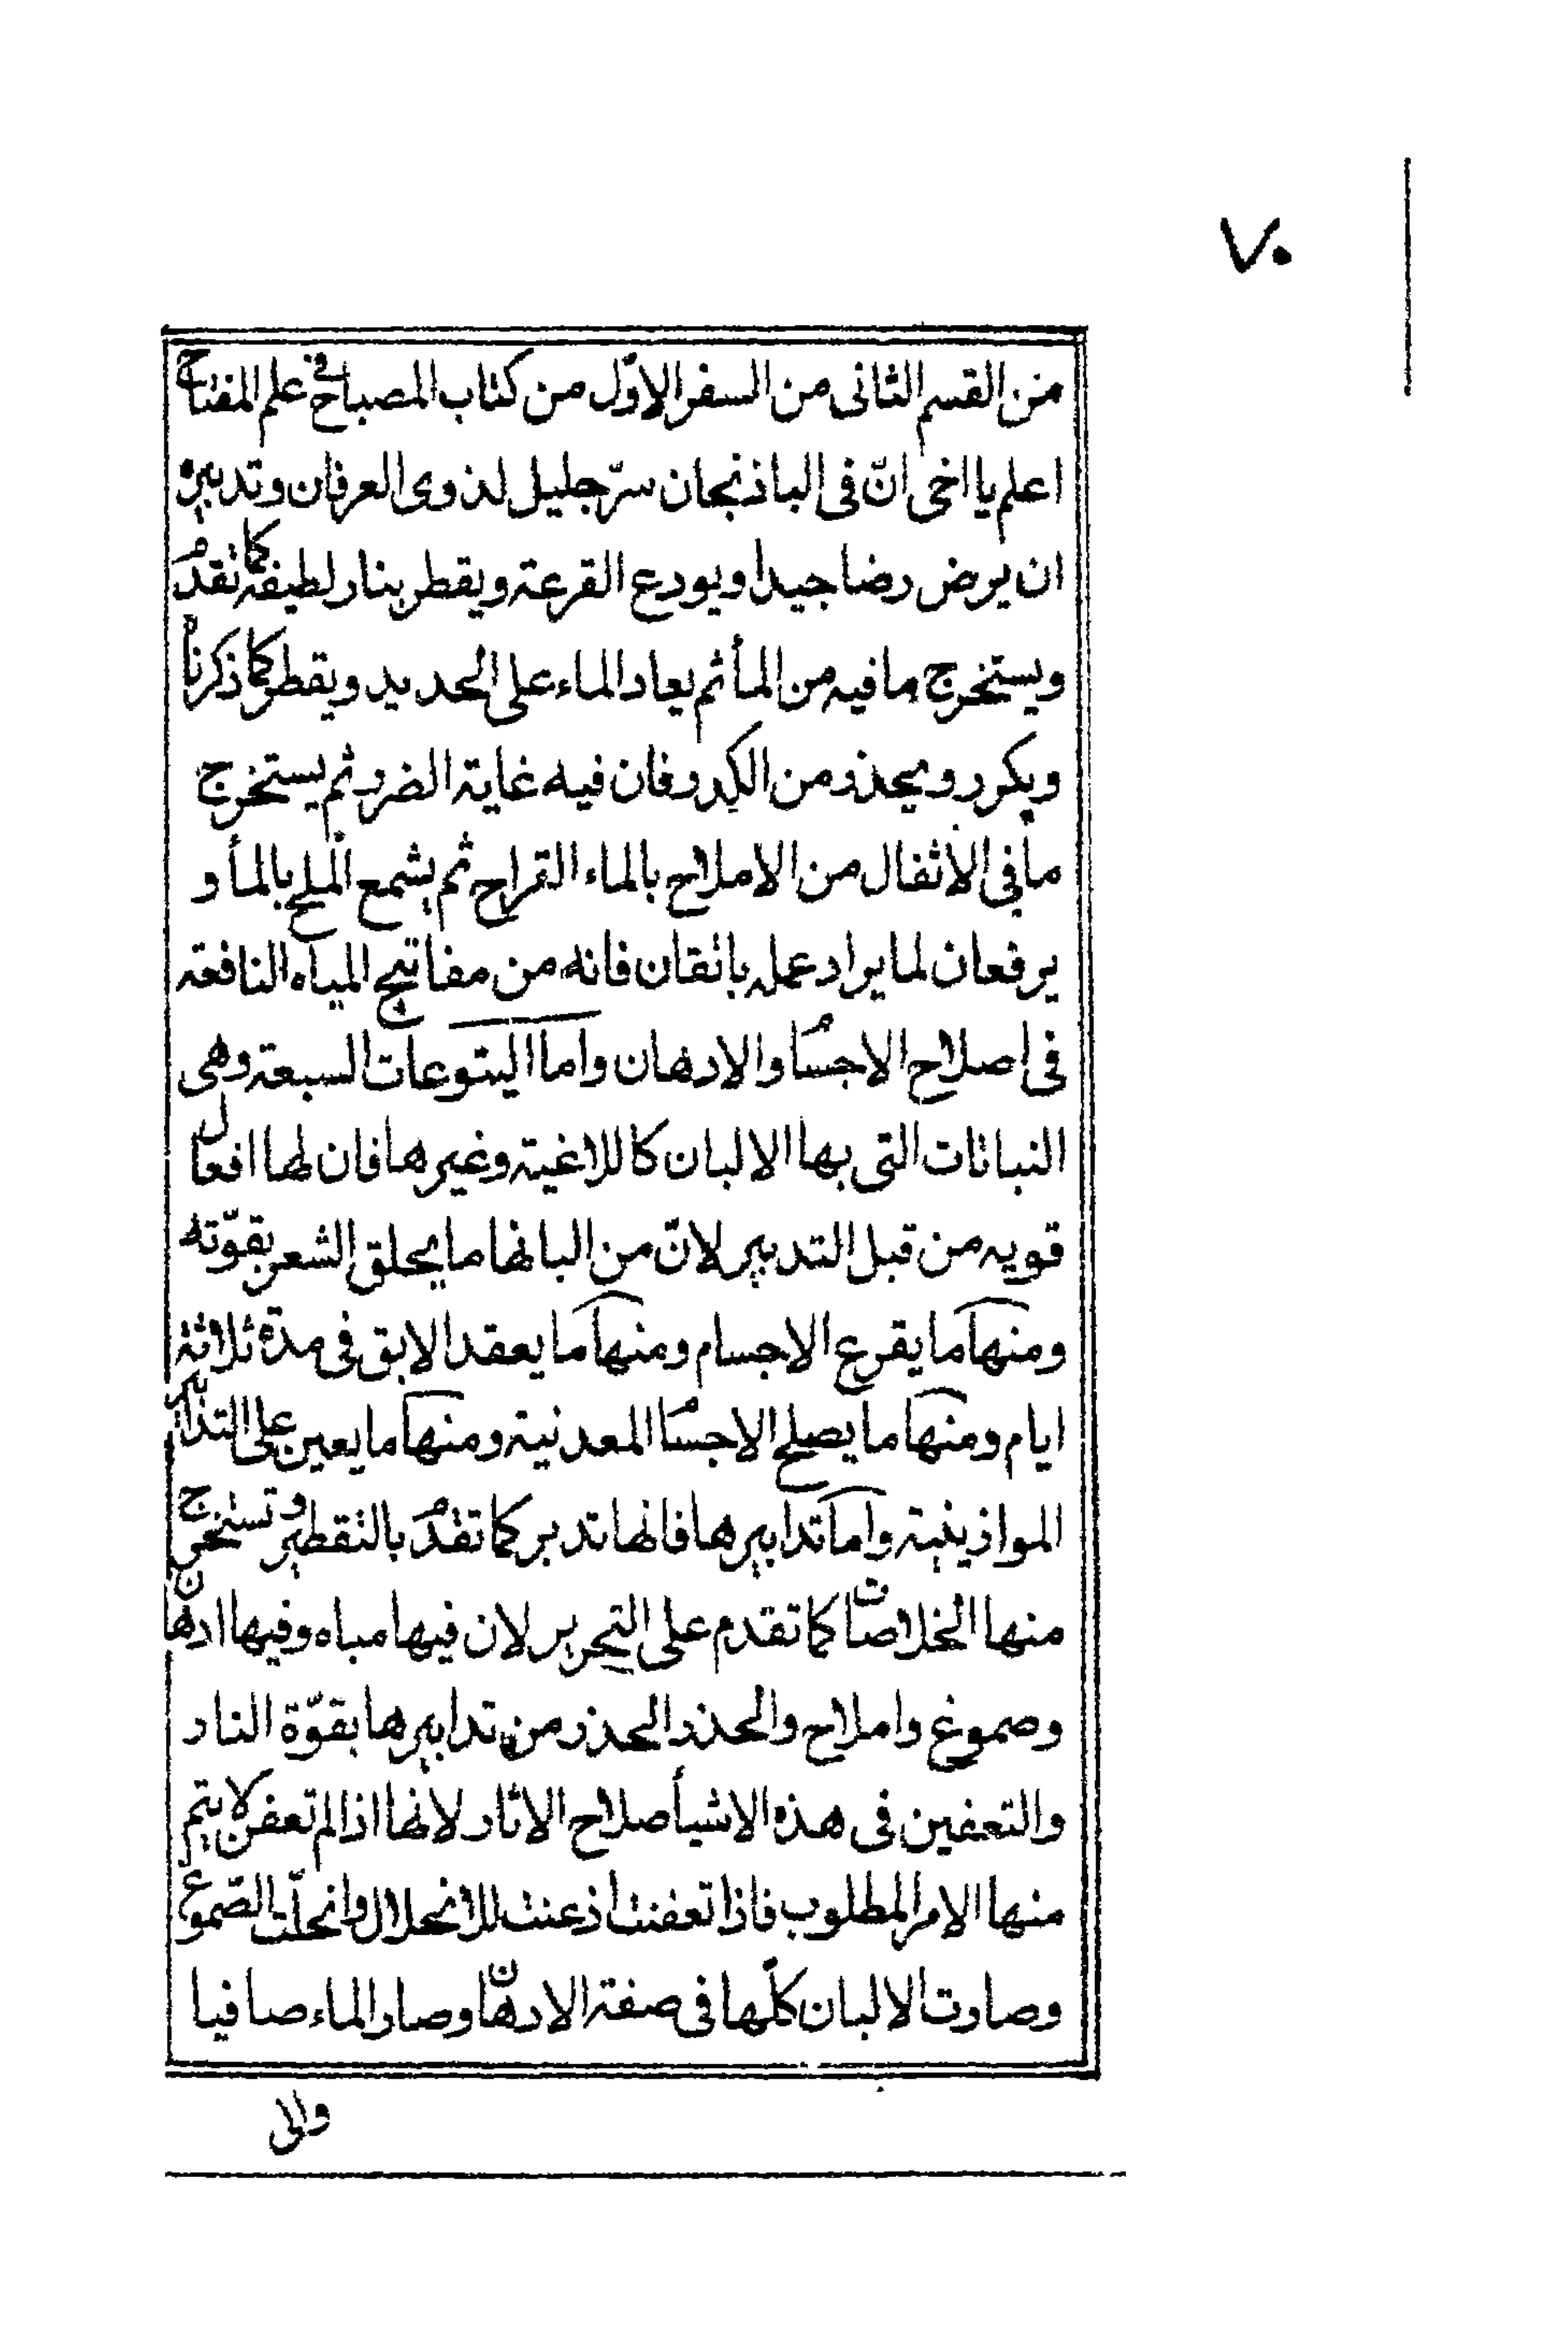 ٧٠
من القسم الثانى من السفر الاوّل من كتاب المصباح فى علم المفتاح
اعلم يا اخى انّ فى الباذنجان سرّ جليل لذوى العرفان وتدبيره
ان يرض رضا جيدا ويودع القرعة ويقطر بنار لطيفة كما تقدم
ويستخرج ما فيه من المأ ثم يعاد الماء على الحديد ويقطر كما ذكرنا
ويكرر ويحذر من الكدر فان فيه غاية الضرر ثم يستخرج
ما فى الاثفال من الاملاح بالماء القراح ثم يشمع الملح بالمأ و
يرفعان لما يراد عمله باتقان فانه من مفاتيح المياه النافعة
فى اصلاح الاجسام والادهان واما اليتوعات السبعة وهى
النباتات التى بها الالبان كاللاغية وغيرها فان لها افعال
قويه من قبل التدبير لانّ من البانها ما يحلق الشعر بقوّته
ومنها ما يقرع الاجسام ومنها ما يعقد الابق فى مدة ثلاثة
ايام ومنها ما يصلح الاجسام المعدنية ومنها ما يعين على التدابير
الموازينية واما تدابيرها فانها تدبر كما تقدم بالتقطير وتستخرج
منها الخلاصات كما تقدم على التحرير لان فيها مياه وفيها ادهان
وصموغ واملاح والحذر الحذر من تدابيرها بقوّة النار
والتعفين فى هذه الاشيأ صلاح الاثار لانها اذا لم تعفن لا يتم
منها الامر المطلوب فاذا تعفنت اذعنت للانحلال وانحلّت الصموغ
وصارت الالبان كلّها فى صفة الادهان وصار الماء صافيا
والى